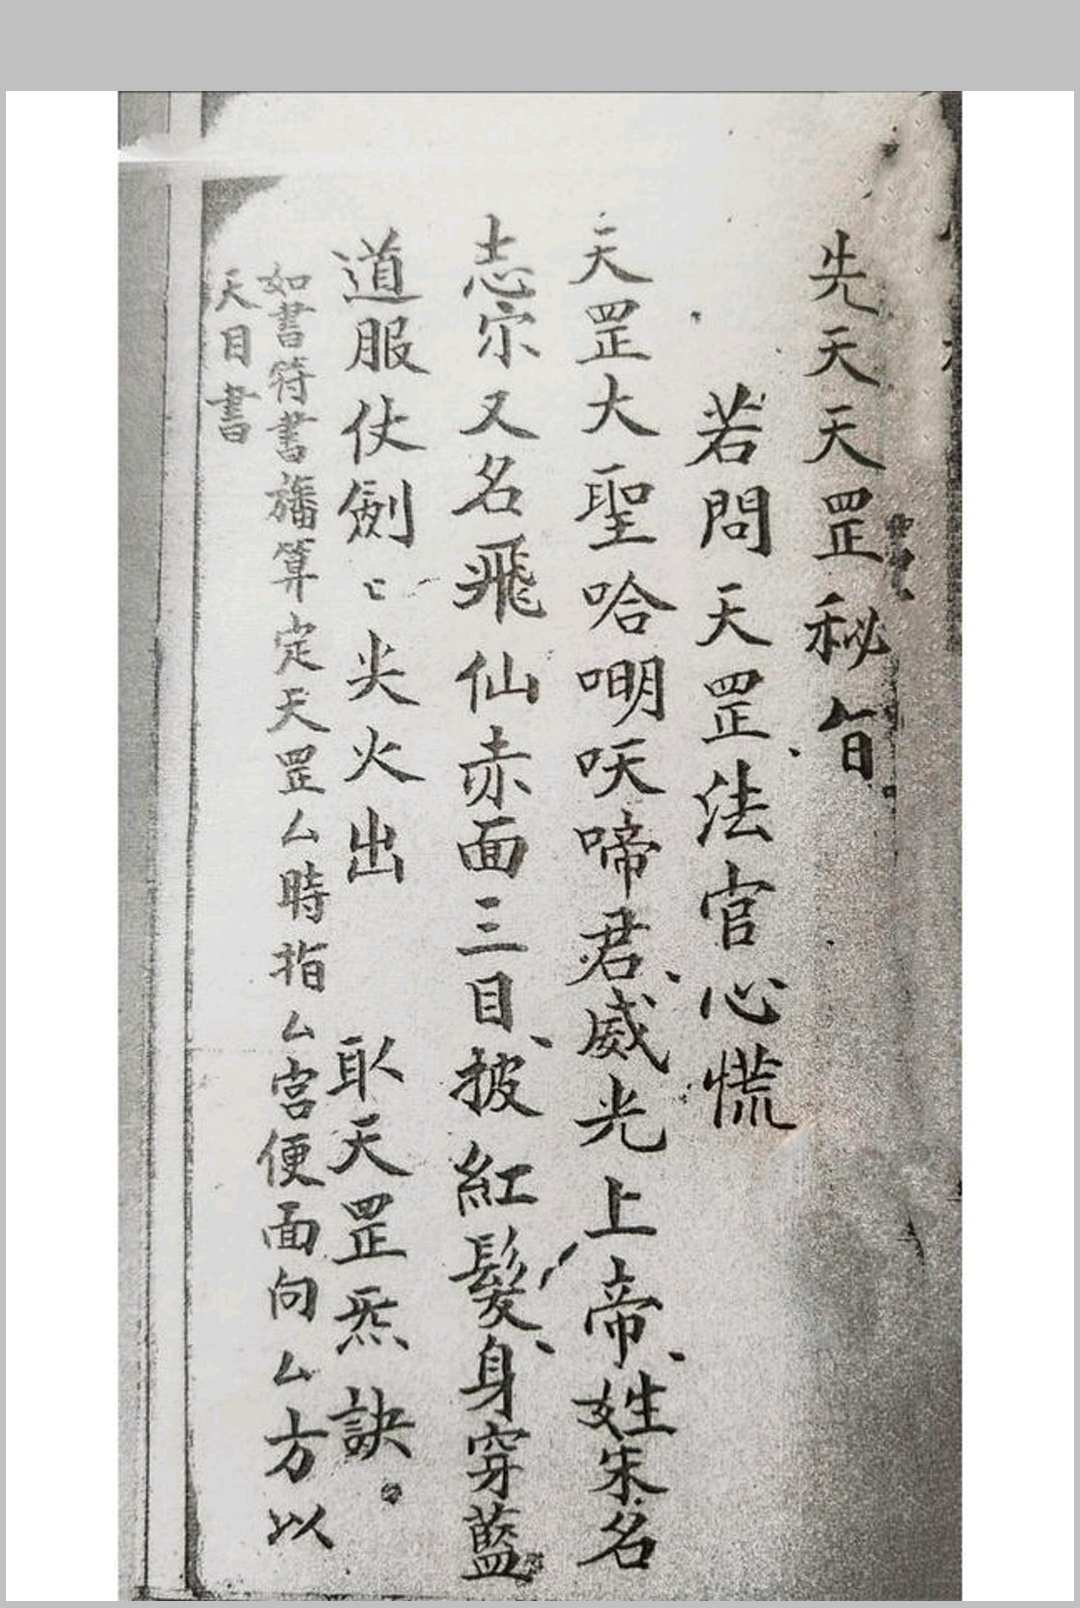 先天天罡秘旨
若問天罡法官心慌
天罡大聖哈嘲吠啼君威光上帝姓朱名
志宗又名飛仙赤面三目披紅髮身穿藍
道服仗劍〻尖火出 取天罡炁訣。
如書符書旛算定天罡厶時指厶宮便面向厶方以
天目書